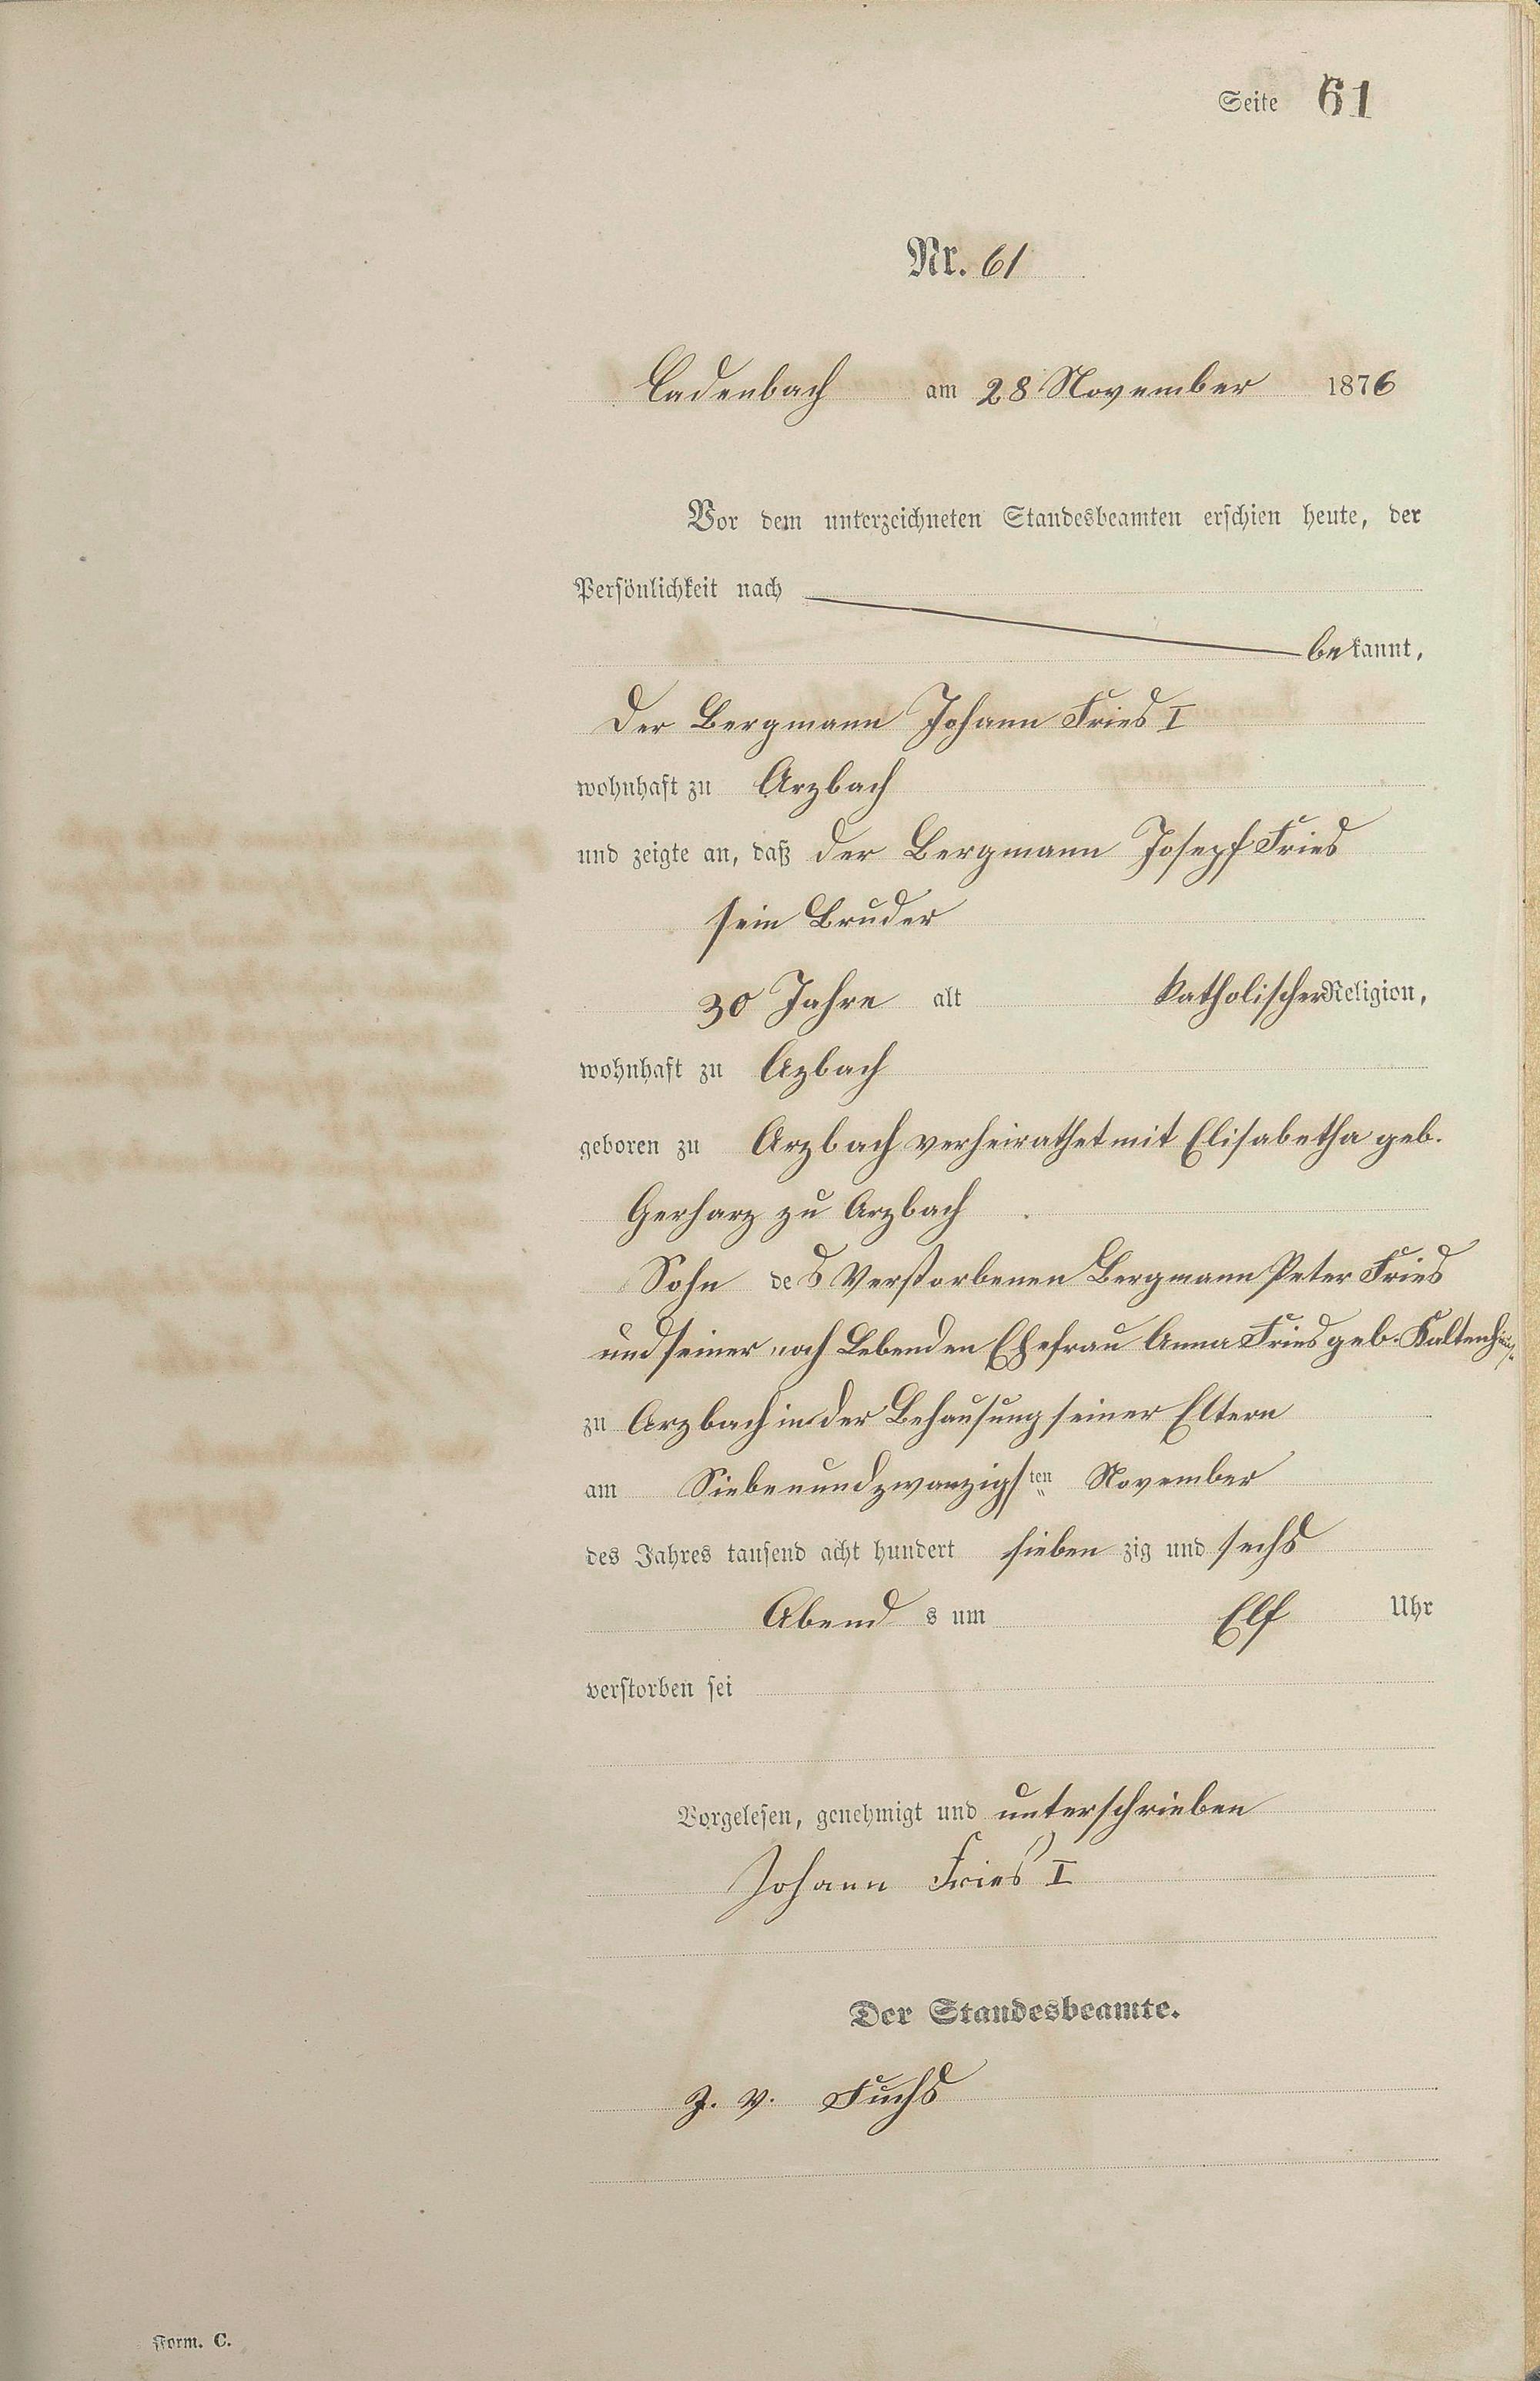 Seite 61
Nr. 61
Cadenbach am 28 November 1876
Vor dem unterzeichneten Standesbeamten erschien heute, der
Persönlichkeit nach
bekannt,
der Bergmann Johann Fries I
wohnhaft zu Arzbach
und zeigte an, daß der Bergmann Josepf Fries
sein Bruder
30 Jahre alt katholischer Religion,
wohnhaft zu Azbach
geboren zu Arzbach verheirathet mit Elisabetha geb.
Gerharz zu Arzbach
Sohn des Verstorbenen Bergmann Peter Fries
und seiner noch Lebenden Ehefrau Anna Fries geb.
zu Arzbach in der Behausung seiner Eltern
am Siebenundzwanzigsten November
des Jahres tausend acht hundert siebenzig und sechs
Abends um Elf Uhr
verstorben sei
Vorgelesen, genehmigt und unterschrieben
Johann Fries I
Der Standesbeamte.
Fuchs
Form. C.